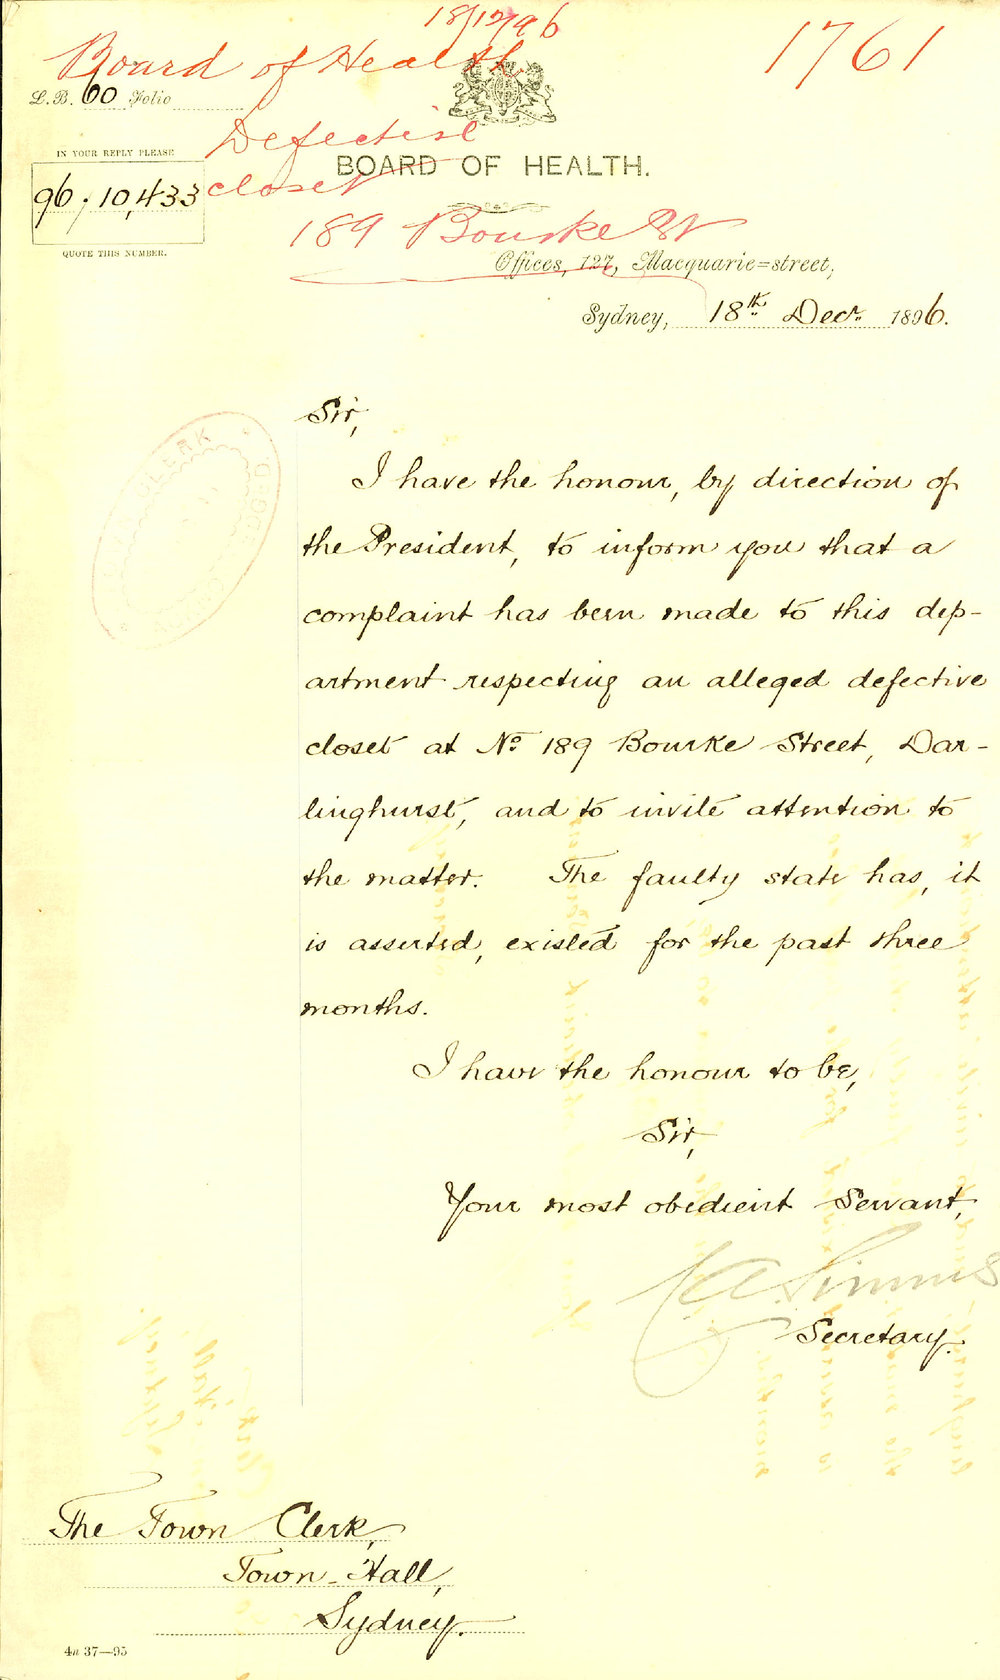 18/12/96
1761
Board of Health
L.B. 60 Folio
Defective
IN YOUR REPLY PLEASE
BOARD OF HEALTH.
96. 10,433
closet
QUOTE THIS NUMBER.
189 Bourke St
Offices, 127, Macquarie=street,
Sydney, 18th Decr. 1896.
Sir,
I have the honour, by direction of
the President, to inform you that a
complaint has been made to this dep-
artment respecting an alleged defective
closet at No 189 Bourke Street, Dar-
linghurst, and to invite attention to
the matter. The faulty state has, it
is asserted, existed for the past three
months.
I have the honour to be,
Sir,
Your most obedient Servant,
Simms
Secretary.
The Town Clerk,
Town-Hall,
Sydney.
4a 37—95